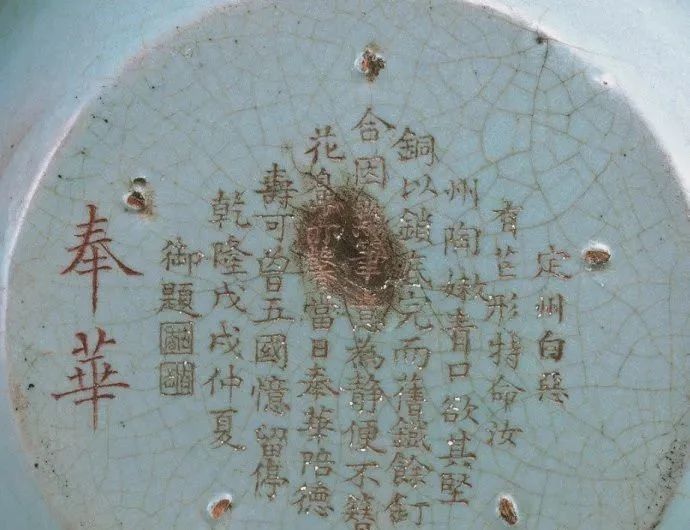 定州白惡
有芒形特命汝
州陶嫩青口欲其堅
銅以鎖底完而舊鐵餘釘
合因筆意為靜便不簪
花鼻亦當日奉華陪德
壽可曾五國憶留停
乾隆戊戌仲夏
御題
奉華